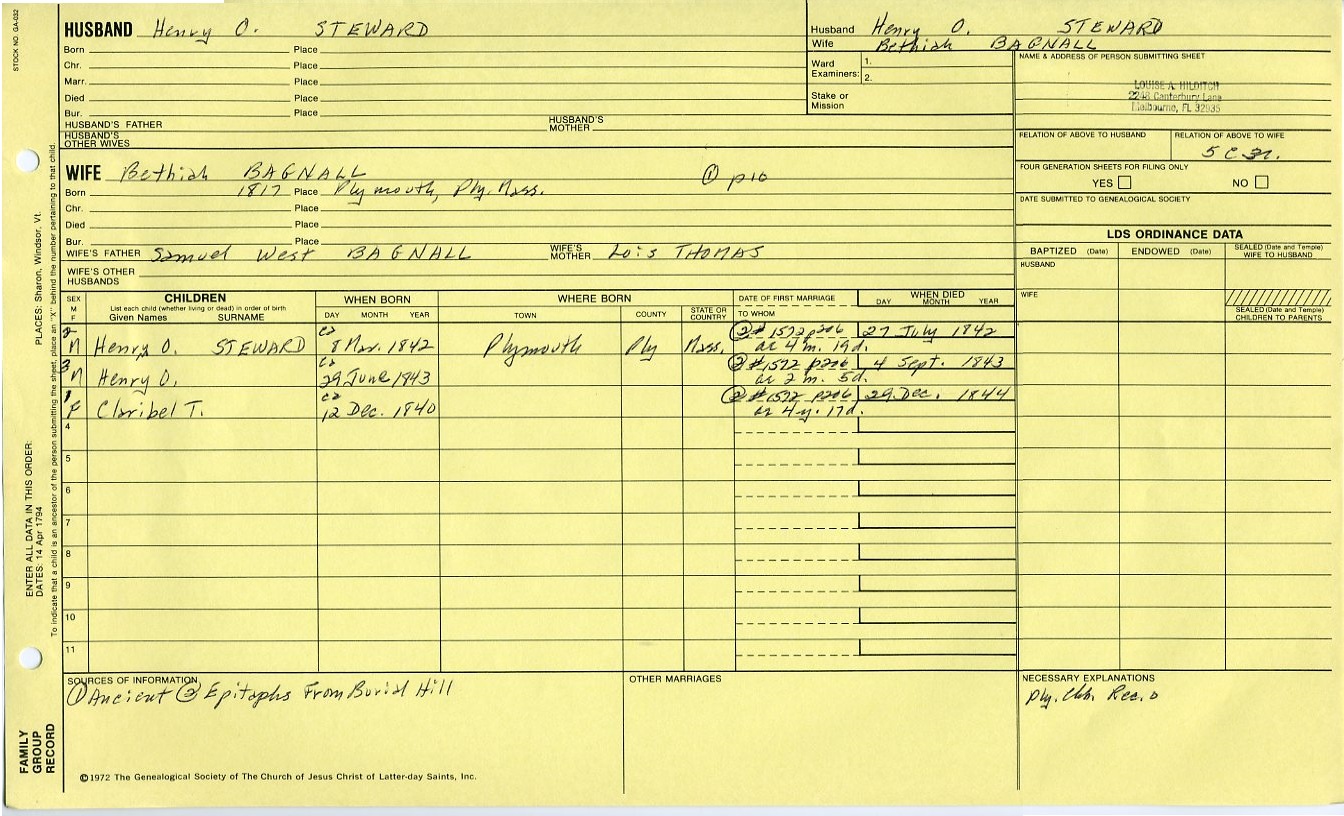 STOCK NO. GA-032
HUSBAND Henry O. STEWARD
Born Place
Chr. Place
Marr. Place
Died Place
Bur. Place
HUSBAND'S FATHER HUSBAND'S MOTHER
HUSBAND'S OTHER WIVES
Husband Henry O. STEWARD
Wife Bethiah BAGNALL
Ward Examiners: 1.
2.
Stake or Mission
NAME & ADDRESS OF PERSON SUBMITTING SHEET
LOUISE A. HILDITCH
2248 Canterbury Lane
Melbourne, FL 32935
RELATION OF ABOVE TO HUSBAND RELATION OF ABOVE TO WIFE
5 C
FOUR GENERATION SHEETS FOR FILING ONLY
YES NO
DATE SUBMITTED TO GENEALOGICAL SOCIETY
WIFE Bethiah BAGNALL ① p10
Born 1817 Place Plymouth, Ply. Mass.
Chr. Place
Died Place
Bur. Place
WIFE'S FATHER Samuel West BAGNALL WIFE'S MOTHER Lois THOMAS
WIFE'S OTHER HUSBANDS
LDS ORDINANCE DATA
BAPTIZED (Date) ENDOWED (Date) SEALED (Date and Temple) WIFE TO HUSBAND
HUSBAND
WIFE
SEALED (Date and Temple) CHILDREN TO PARENTS
SEX M F
CHILDREN
List each child (whether living or dead) in order of birth
Given Names SURNAME
WHEN BORN
DAY MONTH YEAR
WHERE BORN
TOWN COUNTY STATE OR COUNTRY
DATE OF FIRST MARRIAGE
TO WHOM
WHEN DIED
DAY MONTH YEAR
2 M Henry O. STEWARD ca 8 Mar. 1842 Plymouth Ply Mass. ② #1572 p206 27 July 1842
ae 4 m. 19d.
3 M Henry O. ca 29 June 1843 ② #1572 p206 4 Sept. 1843
ae 2 m. 5d.
1 F Claribel T. ca 12 Dec. 1840 ② #1572 p206 29 Dec. 1844
ae 4y. 17d.
4
5
6
7
8
9
10
11
SOURCES OF INFORMATION
① Ancient ② Epitaphs From Burial Hill
OTHER MARRIAGES
NECESSARY EXPLANATIONS
Ply. Chh. Rec. 0
©1972 The Genealogical Society of The Church of Jesus Christ of Latter-day Saints, Inc.
FAMILY GROUP RECORD
ENTER ALL DATA IN THIS ORDER:
DATES: 14 Apr 1794
PLACES: Sharon, Windsor, Vt.
To indicate that a child is an ancestor of the person submitting the sheet, place an "X" behind the number pertaining to that child.